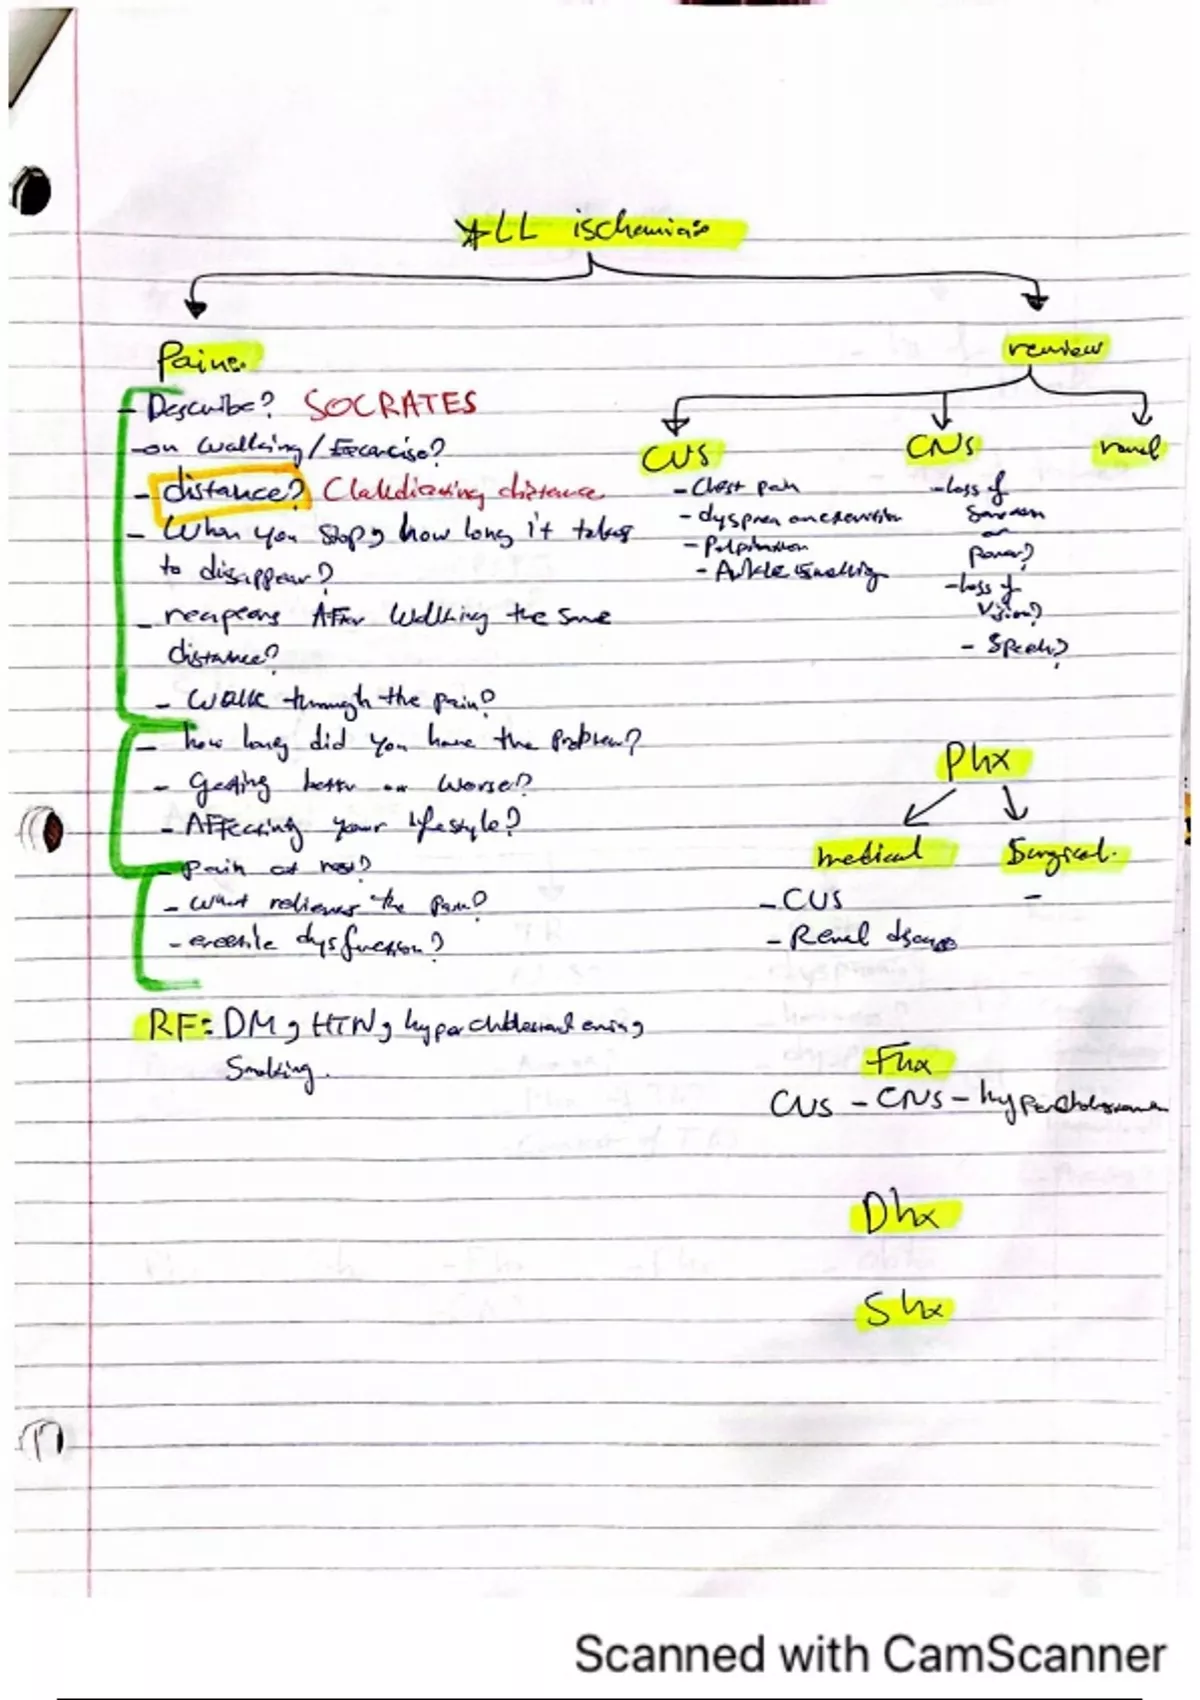 *LL ischemia:
Pain:
- Describe? SOCRATES
- on walking / Excercise?
- distance? Claudicating distance
- When you stop, how long it takes
to disappear?
- reappears After Walking the same
distance?
- Walk through the pain?
- how long did you have the problem?
- Getting better or Worse?
- Affecting your lifestyle?
- pain at rest?
- what relieves the pain?
- erectile dysfunction?
RF: DM, HTN, 
Smoking.
review
CVS
- Chest pain
- dyspnea on exertion
- Palpitation
- Ankle swelling
CNS
- loss of
sensation
or
power?
- loss of
Vision?
- Speech?
renal
Phx
medical
- CVS
- Renal disease
Surgical.
-
Fhx
CVS - CNS -
Dhx
Shx
Scanned with CamScanner